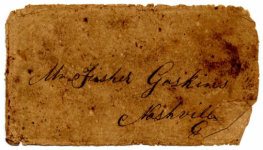 Mr Fisher Gaskins
Nashville